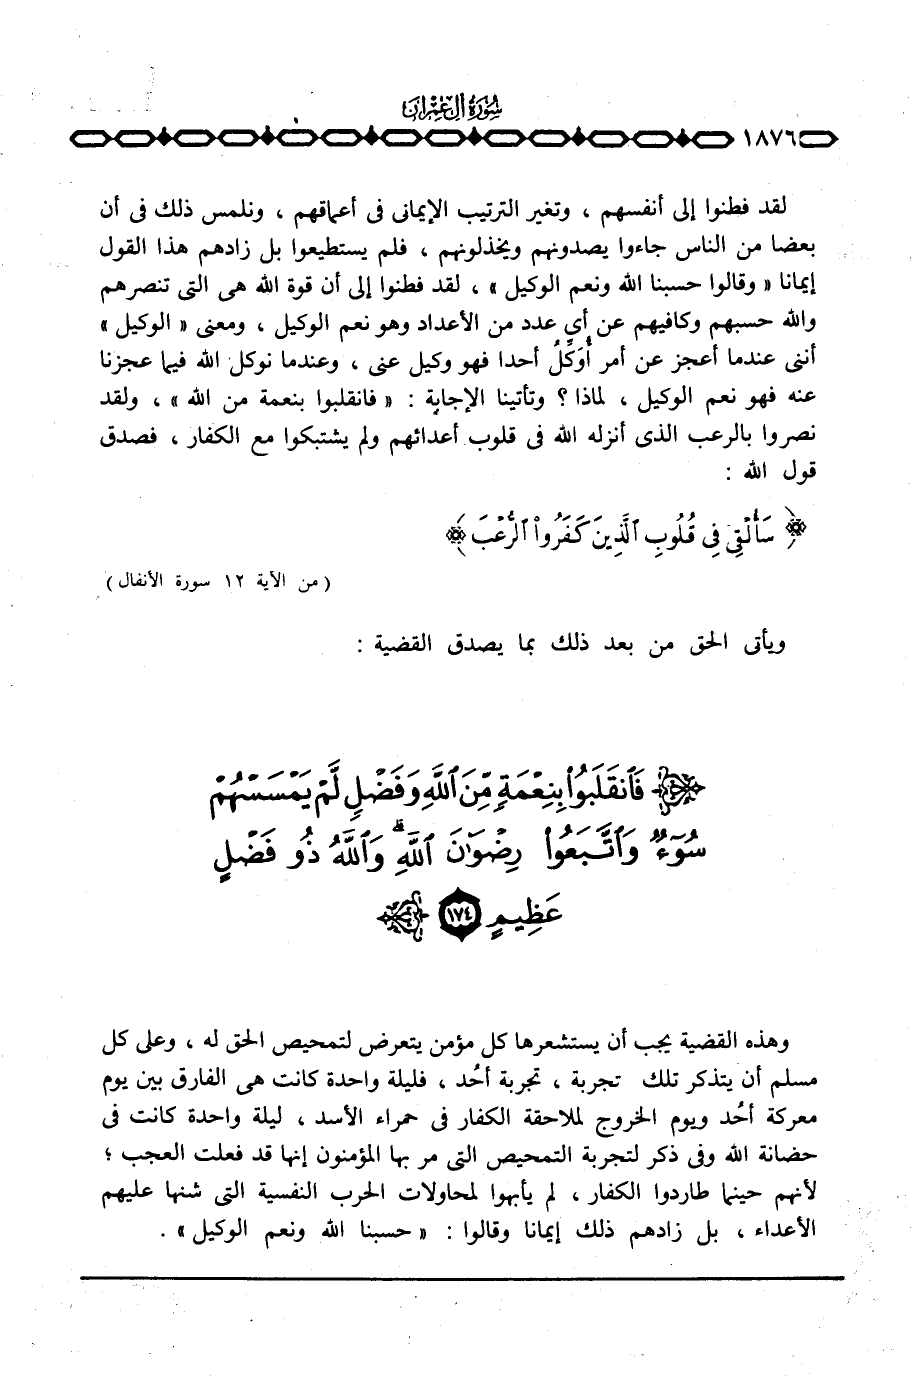 سُورَةُ آلِ عِمْرَانَ
١٨٧٦
لقد فطنوا إلى أنفسهم ، وتغير الترتيب الإيمانى فى أعماقهم ، ونلمس ذلك فى أن
بعضا من الناس جاءوا يصدونهم ويخذلونهم ، فلم يستطيعوا بل زادهم هذا القول
إيمانا « وقالوا حسبنا الله ونعم الوكيل » ، لقد فطنوا إلى أن قوة الله هى التى تنصرهم
والله حسبهم وكافيهم عن أي عدد من الأعداد وهو نعم الوكيل ، ومعنى « الوكيل »
أننى عندما أعجز عن أمر أُوَكِّلُ أحدا فهو وكيل عنى ، وعندما نوكل الله فيما عجزنا
عنه فهو نعم الوكيل ، لماذا ؟ وتأتينا الإجابة : « فانقلبوا بنعمة من الله » ، ولقد
نصروا بالرعب الذى أنزله الله فى قلوب أعدائهم ولم يشتبكوا مع الكفار ، فصدق
قول الله :
﴿ سَأُلْقِي فِي قُلُوبِ ٱلَّذِينَ كَفَرُواْ ٱلرُّعْبَ ﴾
( من الآية ١٢ سورة الأنفال )
ويأتى الحق من بعد ذلك بما يصدق القضية :
﴿ فَٱنقَلَبُواْ بِنِعْمَةٍ مِّنَ ٱللَّهِ وَفَضْلٍ لَّمْ يَمْسَسْهُمْ
سُوٓءٌ وَٱتَّبَعُواْ رِضْوَٰنَ ٱللَّهِ ۗ وَٱللَّهُ ذُو فَضْلٍ
عَظِيمٍ ١٧٤ ﴾
وهذه القضية يجب أن يستشعرها كل مؤمن يتعرض لتمحيص الحق له ، وعلى كل
مسلم أن يتذكر تلك تجربة ، تجربة أحُد ، فليلة واحدة كانت هى الفارق بين يوم
معركة أحُد ويوم الخروج لملاحقة الكفار فى حمراء الأسد ، ليلة واحدة كانت فى
حضانة الله وفى ذكر لتجربة التمحيص التى مر بها المؤمنون إنها قد فعلت العجب ؛
لأنهم حينما طاردوا الكفار ، لم يأبهوا لمحاولات الحرب النفسية التى شنها عليهم
الأعداء ، بل زادهم ذلك إيمانا وقالوا : « حسبنا الله ونعم الوكيل » .